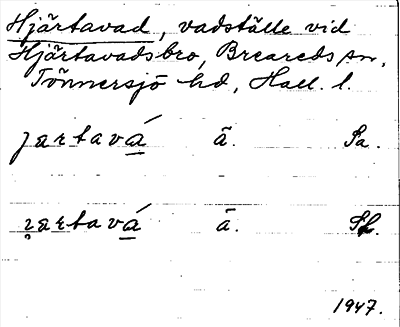 Hjärtavad, vadställe vid
Hjärtavadsbro, Breareds sn,
Tönnersjö hd, Hall. l.
jartavá ā. Sa.
ɀartavá ā.
1947.